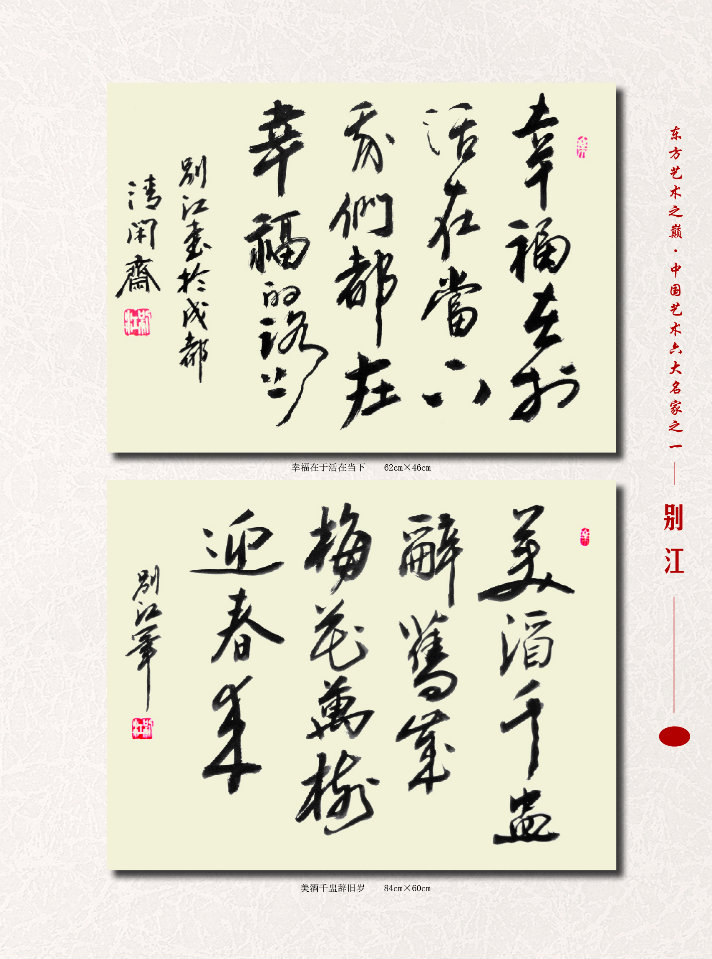 幸福在於
活在當下
我們都在
幸福的路上
别江書於成都
清閑齋
幸福在于活在当下 62cm×46cm
美酒千盅
辭舊歲
梅花萬樹
迎春來
别江筆
美酒千盅辞旧岁 84cm×60cm
东方艺术之巅·中国艺术六大名家之一
别江